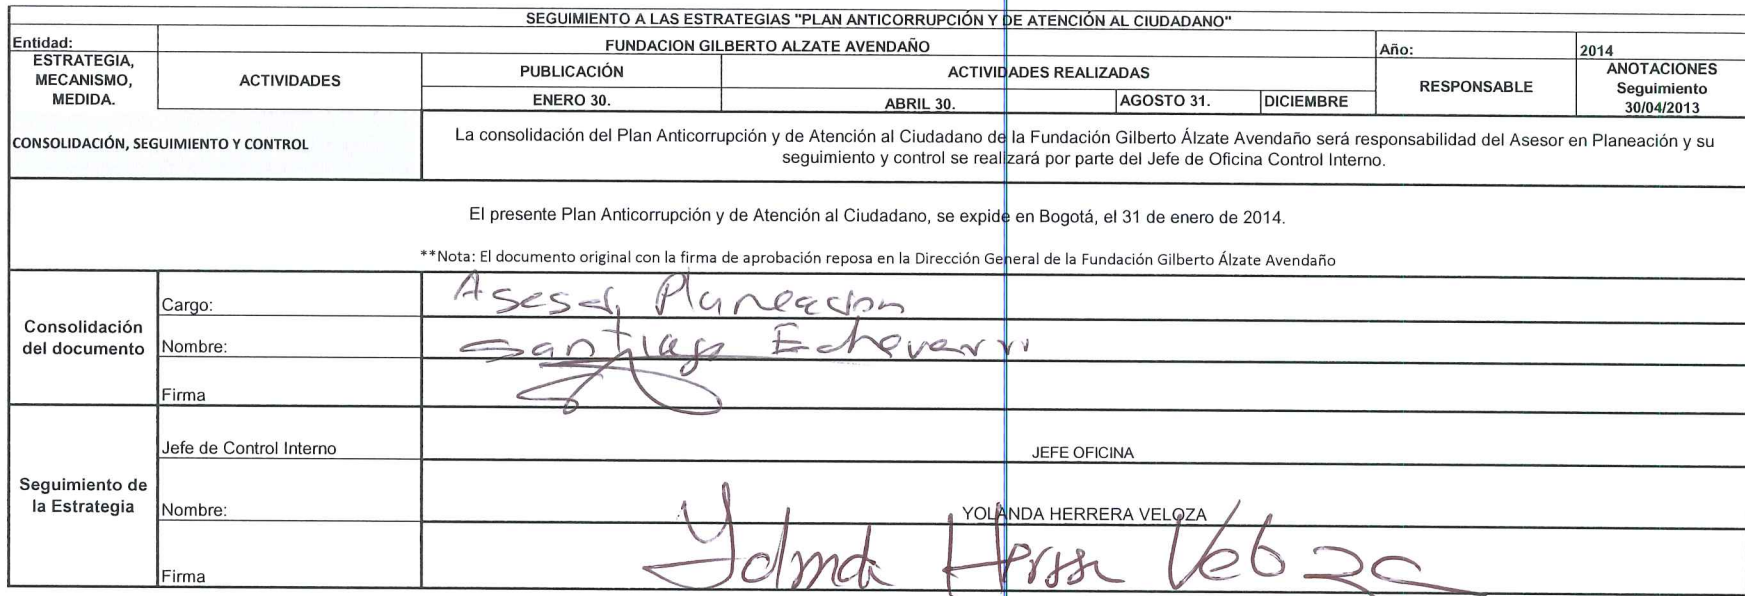 SEGUIMIENTO A LAS ESTRATEGIAS "PLAN ANTICORRUPCIÓN Y DE ATENCIÓN AL CIUDADANO"
Entidad: FUNDACION GILBERTO ALZATE AVENDAÑO Año: 2014
ESTRATEGIA, MECANISMO, MEDIDA. ACTIVIDADES PUBLICACIÓN ACTIVIDADES REALIZADAS RESPONSABLE ANOTACIONES Seguimiento 30/04/2013
ENERO 30. ABRIL 30. AGOSTO 31. DICIEMBRE
CONSOLIDACIÓN, SEGUIMIENTO Y CONTROL
La consolidación del Plan Anticorrupción y de Atención al Ciudadano de la Fundación Gilberto Álzate Avendaño será responsabilidad del Asesor en Planeación y su
seguimiento y control se realizará por parte del Jefe de Oficina Control Interno.
El presente Plan Anticorrupción y de Atención al Ciudadano, se expide en Bogotá, el 31 de enero de 2014.
**Nota: El documento original con la firma de aprobación reposa en la Dirección General de la Fundación Gilberto Álzate Avendaño
Consolidación del documento
Cargo: Asesor Planeacion
Nombre: Santiago Echeverri
Firma
Seguimiento de la Estrategia
Jefe de Control Interno JEFE OFICINA
Nombre: YOLANDA HERRERA VELOZA
Firma Yolanda Herrera Veloza